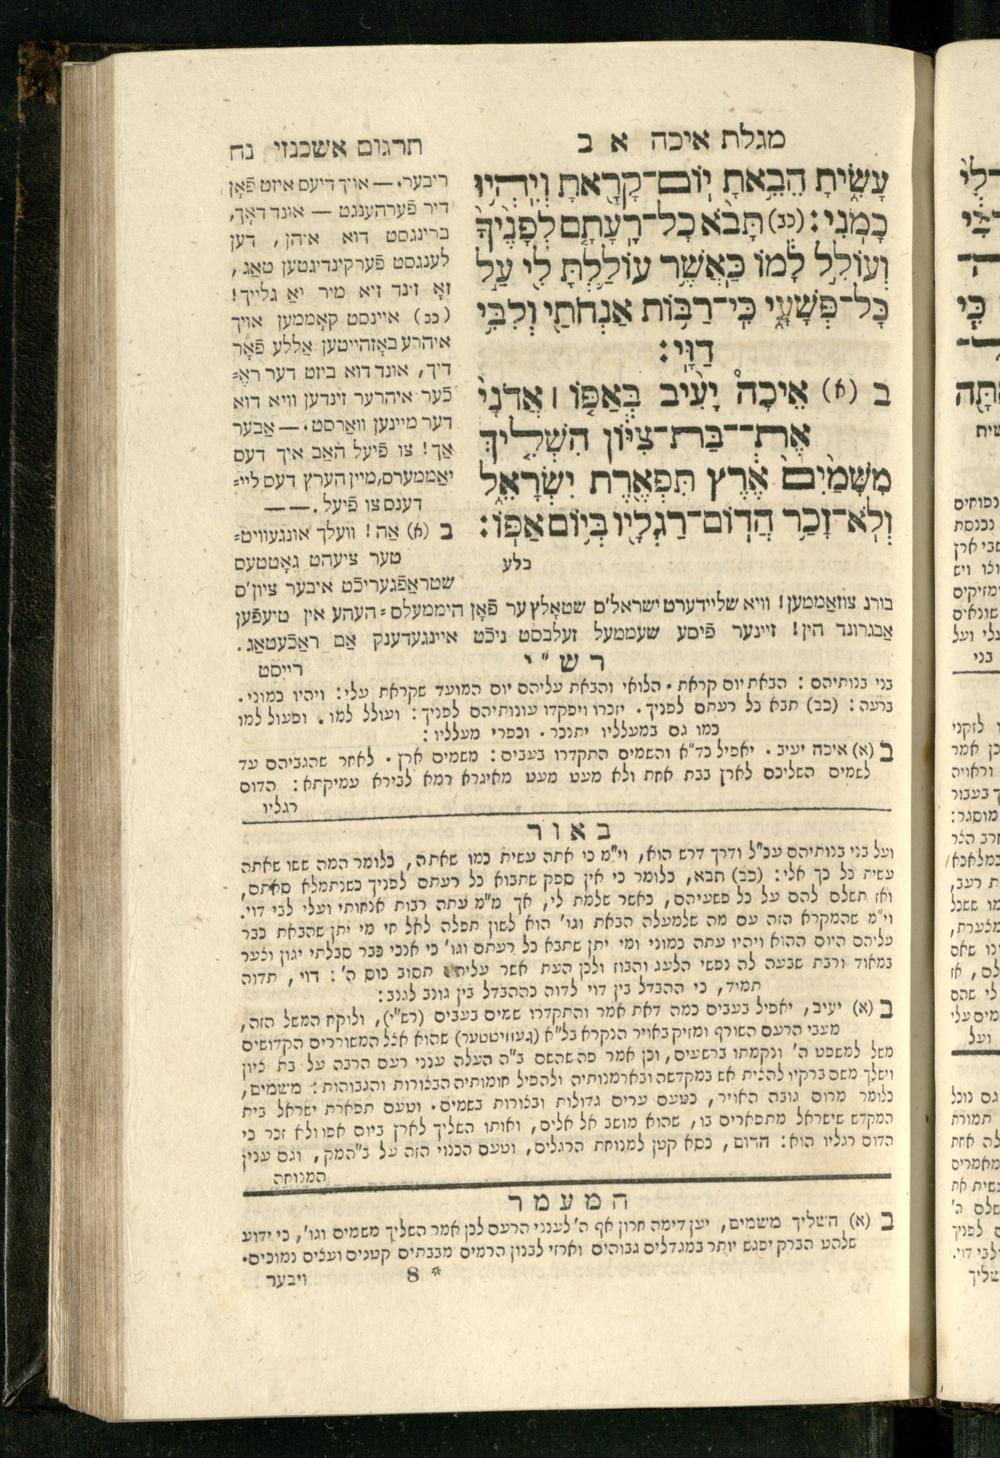 מגלת איכה א ב
תרגום אשכנזי נח
עָשִׂיתָ הֵבֵאתָ יוֹם־קָרָאתָ וְיִהְיוּ
כָמֹנִי׃ (כב) תָּבֹא כָל־רָעָתָם לְפָנֶיךָ
וְעוֹלֵל לָמוֹ כַּאֲשֶׁר עוֹלַלְתָּ לִי עַל
כָּל־פְּשָׁעָי כִּי־רַבּוֹת אַנְחֹתַי וְלִבִּי
דַוָּי׃
ב (א) אֵיכָה יָעִיב בְּאַפּוֹ ׀ אֲדֹנָי
אֶת־־בַּת־צִיּוֹן הִשְׁלִיךְ
מִשָּׁמַיִם אֶרֶץ תִּפְאֶרֶת יִשְׂרָאֵל
וְלֹא־זָכַר הֲדוֹם־רַגְלָיו בְּיוֹם אַפּוֹ׃
בלע
ריבער. — אויך דיעס איזט פֿאָן
דיר פֿערהענגט — אונד דאָך,
ברינגסט דוא איהן, דען
לענגסט פֿערקינדיגטען טאַג,
זאָ זינד זיא מיר יאַ גלייך!
(כב) איינסט קאָממען אויך
איהרע באָזהייטען אַללע פֿאָר
דיך, אונד דוא ביזט דער רא=
כֿער איהרער זינדען וויא דוא
דער מיינען וואַרסט. — אַבער
אַך! צו פֿיעל האַב איך דעס
יאַממערס, מיין הערץ דעס ליי=
דענס צו פֿיעל. — —
ב (א) אַה! וועלך אונגעוויט=
טער ציעהט גאָטטעס
שטראַפֿגעריכֿט איבער ציון'ס
בורג צוזאַממען! וויא שליידערט ישראל'ס שטאָלץ ער פֿאָן היממעלס=העהע אין טיעפֿען
אַבגרונד הין! זיינער פֿיסע שעממעל זעלבסט ניכֿט איינגעדענק אַם ראַכֿעטאַג.
רייסט
רש"י
בני בנותיהם: הבאת יום קראת. הלואי והבאת עליהם יום המועד שקראת עלי: ויהיו כמוני.
ברעה: (כב) תבא כל רעתם לפניך. יזכרו ויפקדו עונותיהם לפניך: ועולל למו. ופעול למו
כמו גם במעלליו יתנכר. ובפרי מעלליו:
ב (א) איכה יעיב. יאפיל כד"א והשמים התקדרו בעבים: משמים ארץ. לאחר שהגביהם עד
לשמים השליכם לארץ בבת אחת ולא מעט מעט מאיגרא רמא לבירא עמיקתא: הדום
רגליו
באור
ועל בני בנותיהם עכ"ל ודרך דרש הוא, וי"מ כי אתה עשית כמו שאתה, כלומר המה ששו שאתה
עשית כל כך אלי: (כב) תבא, כלומר כי אין ספק שתבוא כל רעתם לפניך כשנתמלא סאתם,
ואז תשלם להם על כל פשעיהם, כאשר שלמת לי, אך מ"מ עתה רבות אנחותי ועלי לבי דוי.
וי"מ שהמקרא הזה עם מה שלמעלה הבאת וגו' הוא לשון תפלה לאל חי מי יתן שהבאת כבר
עליהם היום ההוא ויהיו עתה כמוני ומי יתן שתבא כל רעתם וגו' כי אנכי כבר סבלתי יגון וצער
במאוד ורבת שבעה לה נפשי הלעג והבוז ולכן העת אשר עליהם תסוב כוס ה': דוי, תדוה
תמיד, כי ההבדל בין דוי לדוה כההבדל בין גונב לגנב:
ב (א) יעיב, יאפיל בעבים כמה דאת אמר והתקדרו שמים בעבים (רש"י), ולוקח המשל הזה,
מעבי הרעם השורף ומזיק באויר הנקרא בל"א (געוויטטער) שהוא אצל המשוררים הקדושים
משל למשפט ה' ונקמתו ברשעים, וכן אמר פה שהשם ב"ה העלה ענני רעם הרבה על בת ציון
וישלך משם ברקיו להצית אש במקדשה ובארמנותיה ולהפיל חומותיה הבצורות והגבוהות: משמים,
כלומר מרום גובה האויר, כטעם ערים גדולות ובצורות בשמים. וטעם תפארת ישראל בית
המקדש שישראל מתפארים בו, שהוא מושב אל אלים, ואותו השליך לארץ ביום אפו ולא זכר כי
הדום רגליו הוא: הדום, כסא קטן למנוחת הרגלים, וטעם הכנוי הזה על ב"המק, וגם ענין
המנוחה
המעמר
ב (א) השליך משמים, יען דימה חרון אף ה' לענני הרעם לכן אמר השליך משמים וגו', כי ידוע
שלהט הברק יפגש יותר במגדלים גבוהים וארזי לבנון הרמים מבבתים קטנים ועצים נמוכים.
* 8
ויבער